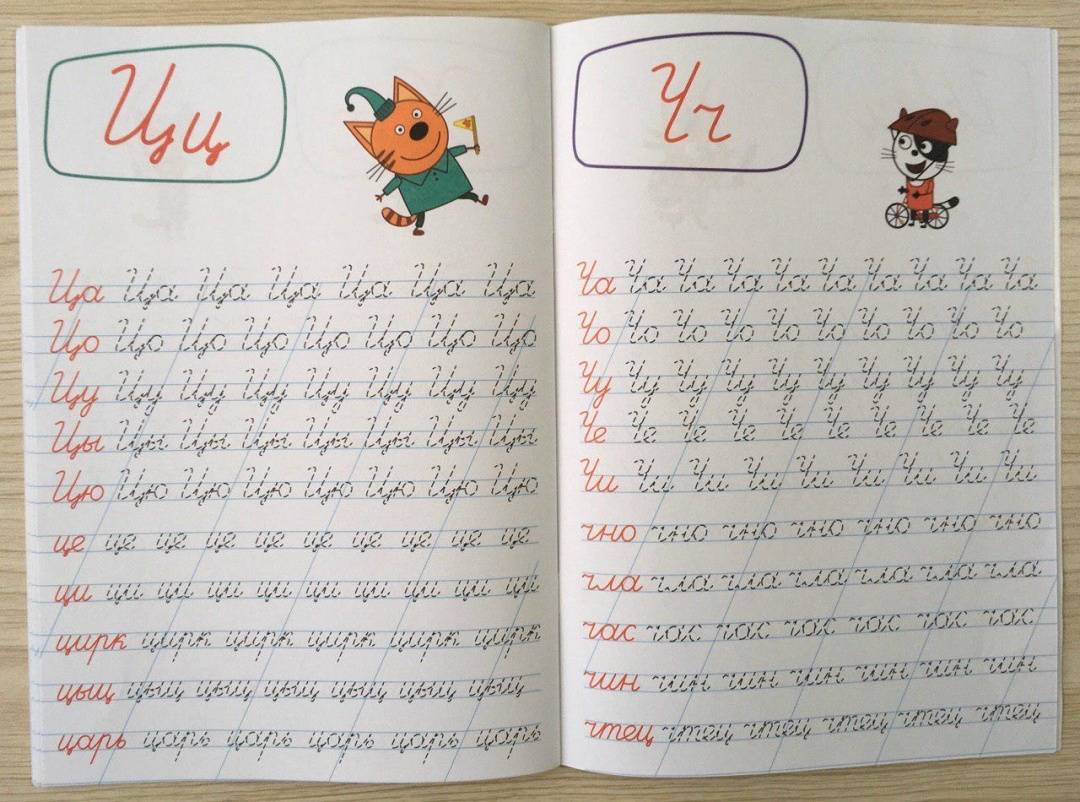 Цц
Ца Ца Ца Ца Ца Ца Ца
Цо Цо Цо Цо Цо Цо Цо Цо
Цу Цу Цу Цу Цу Цу Цу Цу
Цы Цы Цы Цы Цы Цы Цы Цы
Цю Цю Цю Цю Цю Цю Цю Цю
це це це це це це це це це це
ци ци ци ци ци ци ци ци ци ци
цирк цирк цирк цирк цирк цирк
цыщ цыщ цыщ цыщ цыщ цыщ цыщ
царь царь царь царь царь царь
Чч
Ча Ча Ча Ча Ча Ча Ча Ча Ча Ча
Чо Чо Чо Чо Чо Чо Чо Чо Чо Чо
Чу Чу Чу Чу Чу Чу Чу Чу Чу Чу
Че Че Че Че Че Че Че Че Че Че
Чи Чи Чи Чи Чи Чи Чи Чи Чи
чно чно чно чно чно чно чно
чла чла чла чла чла чла чла
час час час час час час час
чин чин чин чин чин чин чин
чтец чтец чтец чтец чтец чтец